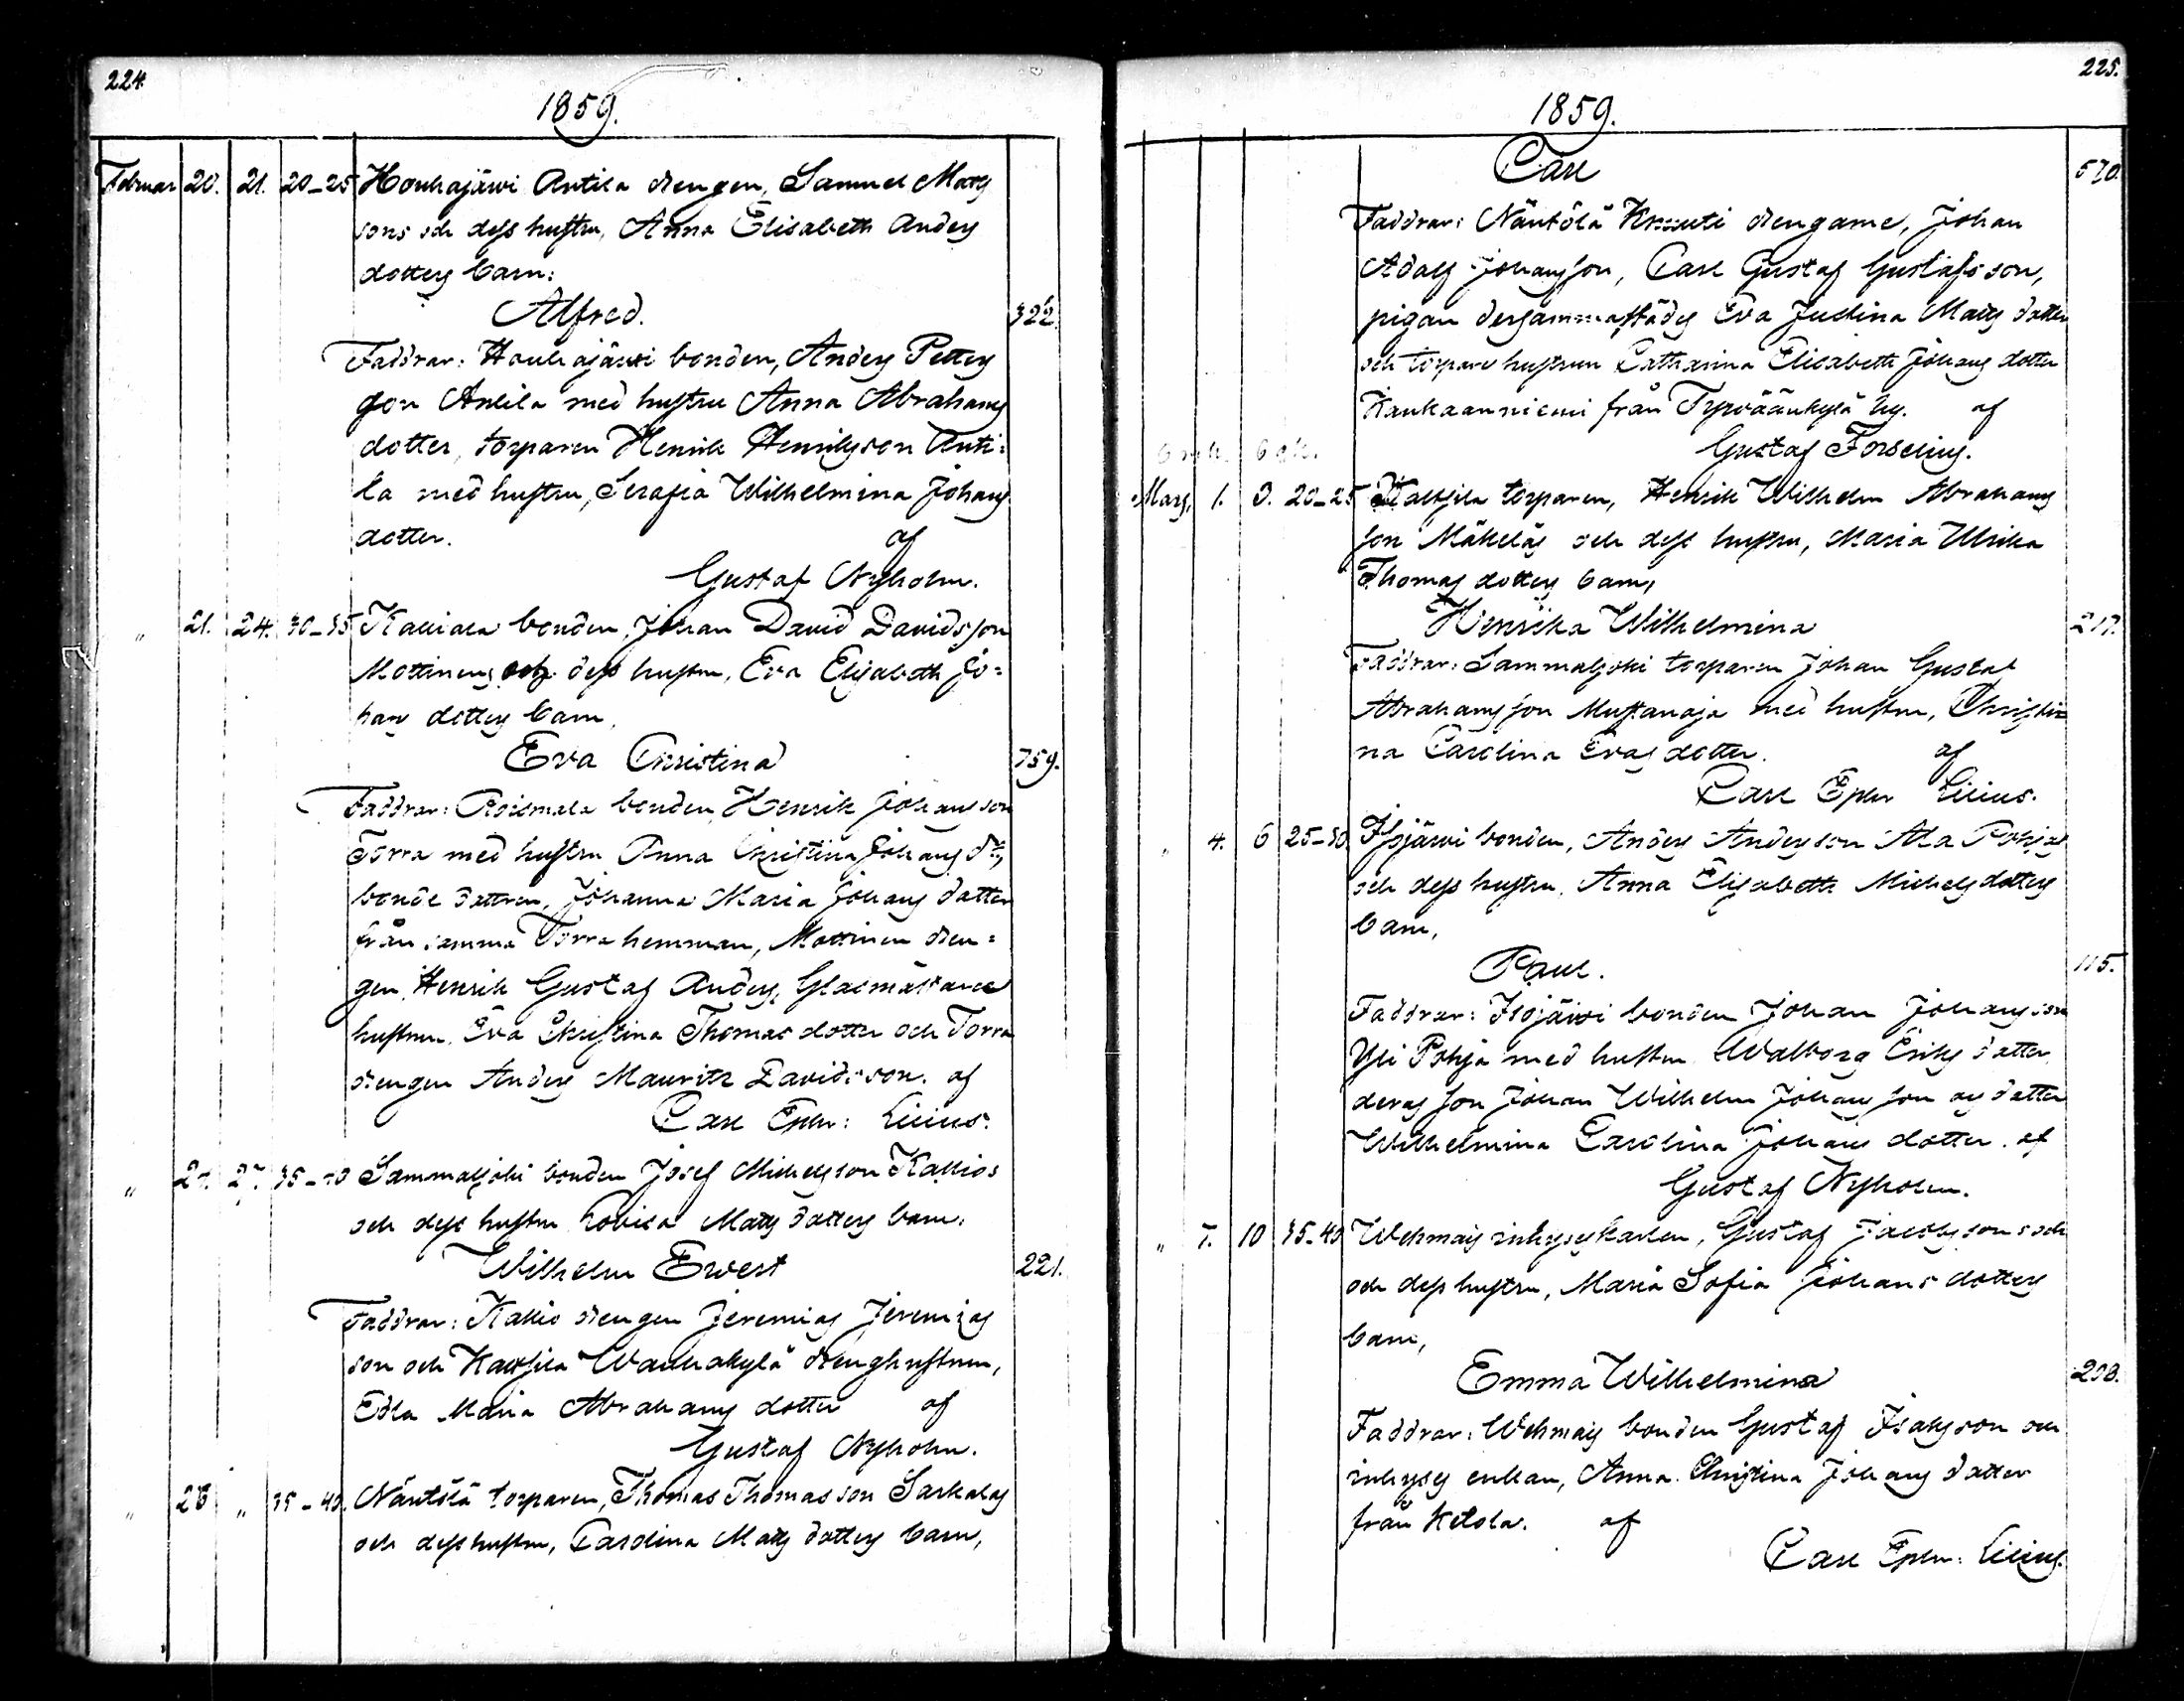 224.
1859.
Februar 20. 21. 20-25 Houhajärwi Antila drengen, Samuel Matts
sons och dess hustru, Anna Elisabeth Anders
dotters barn:
Alfred. 322
Faddrar: Houhajärwi bonden, Anders Petters
son Antila med hustru Anna Abrahams
dotter, torparen Henrik Henriksson Anti=
la med hustru, Serafia Wilhelmina Johans
dotter. af
Gustaf Nyholm.
" 21. 24. 30-35 Kalliala bonden, Johan David Davidsson
Mottinens och dess hustru, Eva Elisabeth Jo=
hans dotters barn,
Eva Christina 759.
Faddrar: Roismala bonden Henrik Johansson
Torra med hustru Anna Christina Johans dr,
bonde dottren, Johanna Maria Johans dotter
från samma Torra hemman, Mottinen dren=
gen, Henrik Gustaf Anders, Glasmästare
hustrun, Eva Christina Thomas dotter och Torra
drengen Anders Mauritz Davidsson. af
Carl Ephr: Lilius.
" 27. 35-40 Sammaljoki bonden Josef Michelsson Kallios
och dess hustru Lovisa Matts dotters barn,
Wilhelm Evert 221.
Faddrar: Kallio drengen Jeremias Jeremias
son och Karsila Wanhakylä drenghustrun,
Edla Maria Abrahams dotter af
Gustaf Nyholm.
" 28 " 35-40. Näntölä torparen, Thomas Thomasson Sarkalas
och dess hustru, Carolina Matts dotters barn,
225.
1859.
Carl 570.
Faddrar: Näntölä Knuuti drengarne, Johan
Adolf Johansson, Carl Gustaf Gustafsson,
pigan dersammastädes Eva Justina Matts dotter
och torpare hustrun Catharina Elisabeth Johans dotter
Kaukaanniemi från Tyrväänkylä by. af
Gustaf Forselius.
Mars, 1. 20-25 Karsila torparen, Henrik Wilhelm Abrahams
son Mäkeläs och dess hustru, Maria Ulrika
Thomas dotters barn,
Henrika Wilhelmina 217.
Faddrar: Sammaljoki torparen Johan Gustaf
Abrahamsson Mustanoja med hustru, Christi=
na Carolina Evas dotter. af
Carl Ephr Lilius.
" 4. 6 25-30. Isojärwi bonden, Anders Andersson Ala Pohjas
och dess hustru, Anna Elisabeth Michels dotters
barn,
Paul. 115.
Faddrar: Isojärwi bonden Johan Johansson
Yli Pohja med hustru Walborg Eriks dotter,
deras son Johan Wilhelm Johansson och dotter
Wilhelmina Carolina Johans dotter. af
Gustaf Nyholm.
" 7. 10 35-40 Wehmais inhyseskarlen, Gustaf Jacobssons och
och dess hustru, Maria Sofia Johans dotters
barn,
Emma Wilhelmina 208.
Faddrar: Wehmais bonden Gustaf Isaksson och
inhyses enkan, Anna Christina Johans dotter
från Ketola. af
Carl Ephr: Lilius.